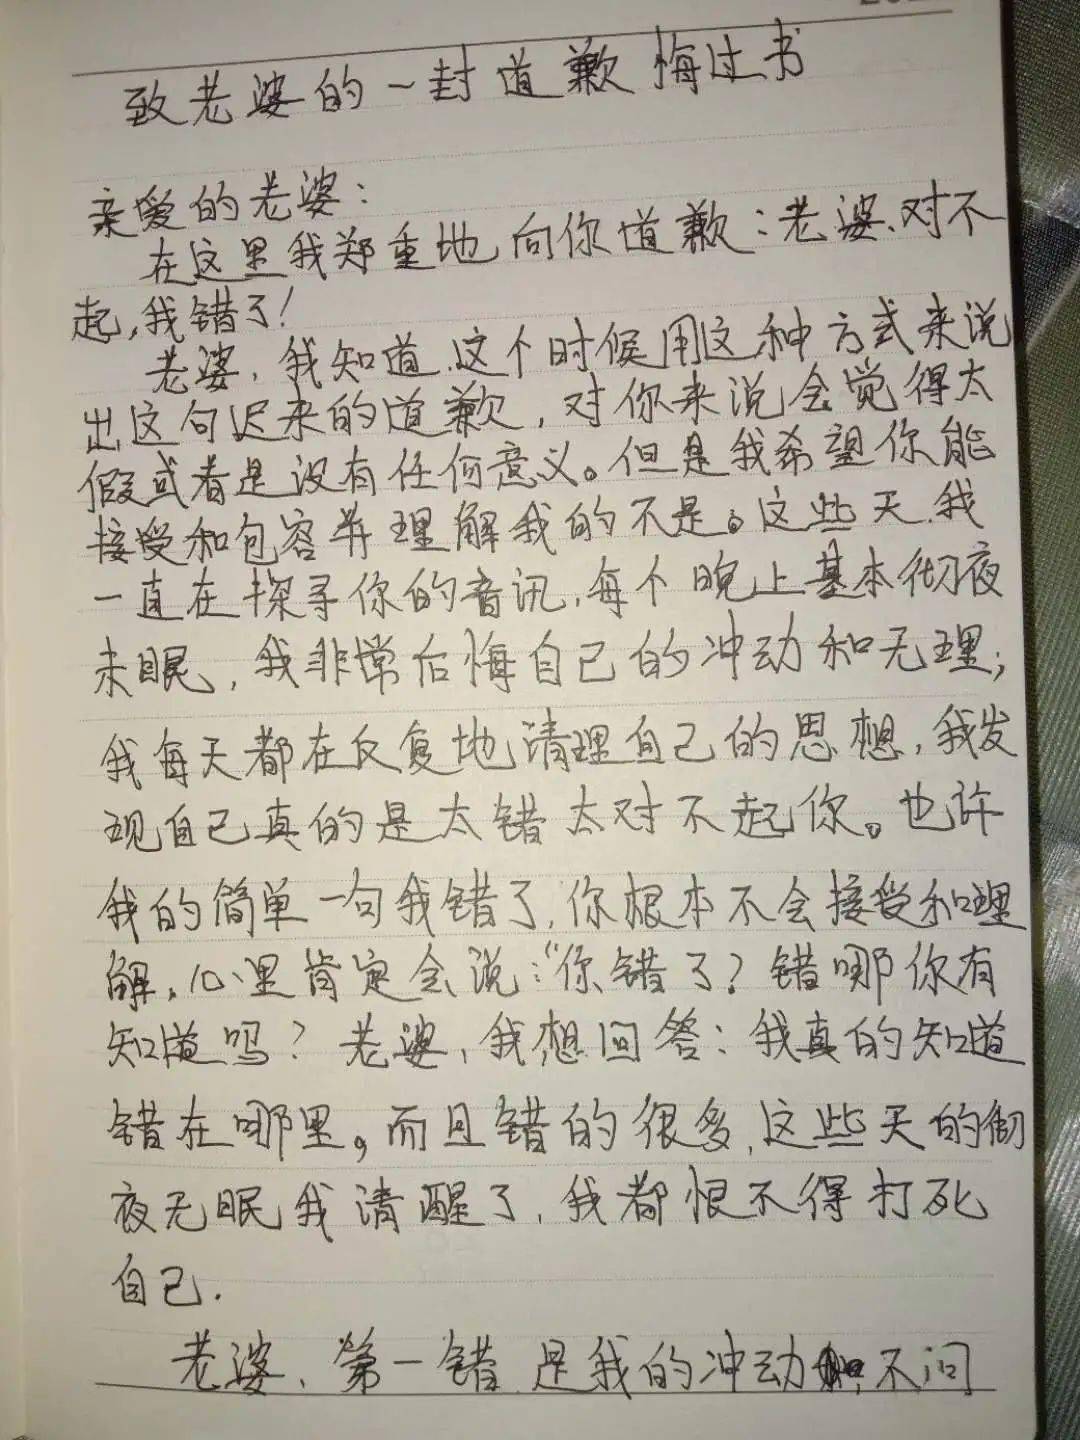 致老婆的一封道歉悔过书
亲爱的老婆：
在这里我郑重地向你道歉：老婆、对不
起，我错了！
老婆，我知道，这个时候用这种方式来说
出这句迟来的道歉，对你来说会觉得太
假或者是没有任何意义。但是我希望你能
接受和包容并理解我的不是。这些天，我
一直在探寻你的音讯，每个晚上基本彻夜
未眠，我非常后悔自己的冲动和无理；
我每天都在反复地清理自己的思想，我发
现自己真的是太错太对不起你。也许
我的简单一句我错了，你根本不会接受和理
解，心里肯定会说：“你错了？错哪你有
知道吗？老婆，我想回答：我真的知道
错在哪里。而且错的很多，这些天的彻
夜无眠我清醒了，我都恨不得打死
自己.
老婆、第一错是我的冲动 不问